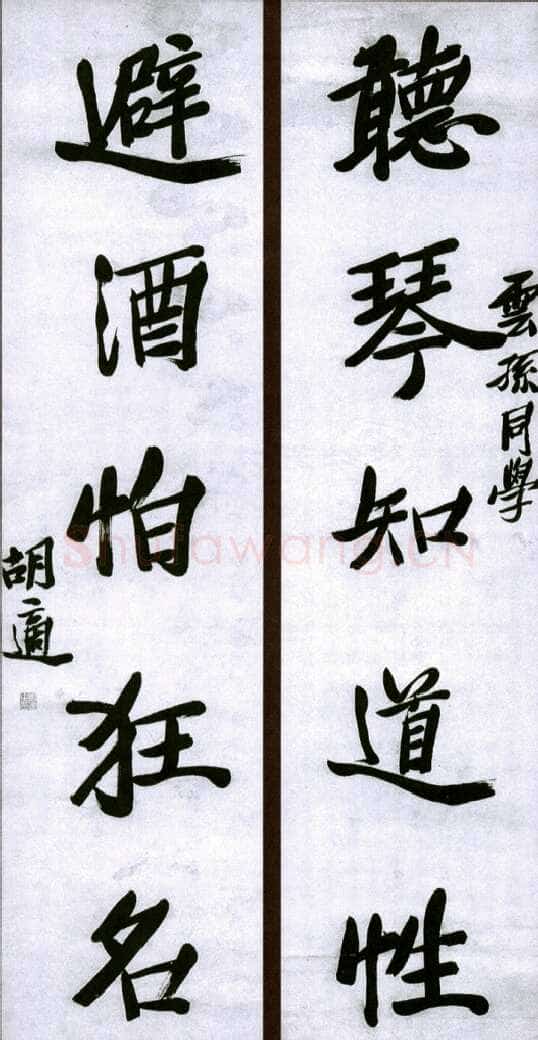 雲孫同學
聽琴知道性
避酒怕狂名
胡適
Shufawang.CN